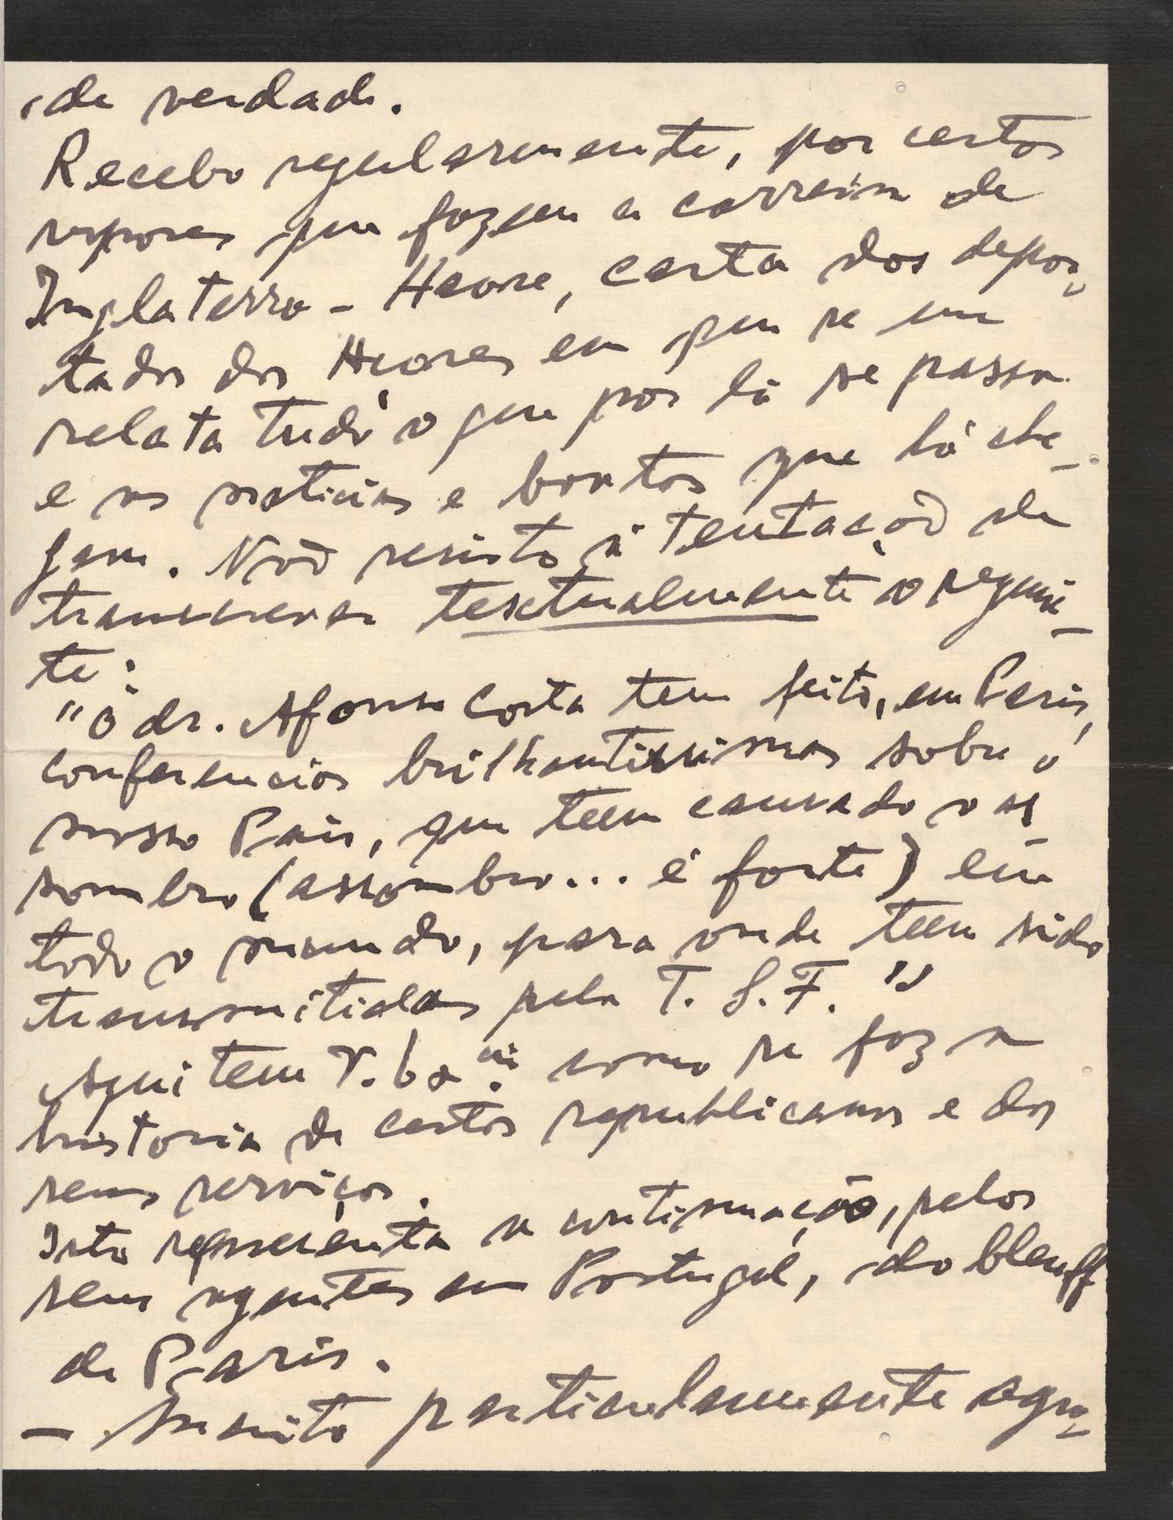 de verdade.
Recebo regularmente, por certos
vapores que fazem a carreira de
Inglaterra - Havre, carta dos depor-
tados dos Açores em que se me
relata tudo o que por lá se passa
e as noticias e boatos que lá che-
gam. Não resisto á tentação de
transcrever textualmente o seguin-
te:
"O dr. Afonso Costa tem feito, em Paris,
conferencias brilhantissimas sobre o
nosso Paiz, que teem causado o as-
sombro (assombro... é forte) em
todo o mundo, para onde teem sido
transmitidas pela T. S. F."
Aqui tem V. como se faz a
historia de certos republicanos e dos
seus serviços.
Isto representa a continuação, pelos
seus agentes em Portugal, do bleuff
de Paris.
- Muito particularmente agra-